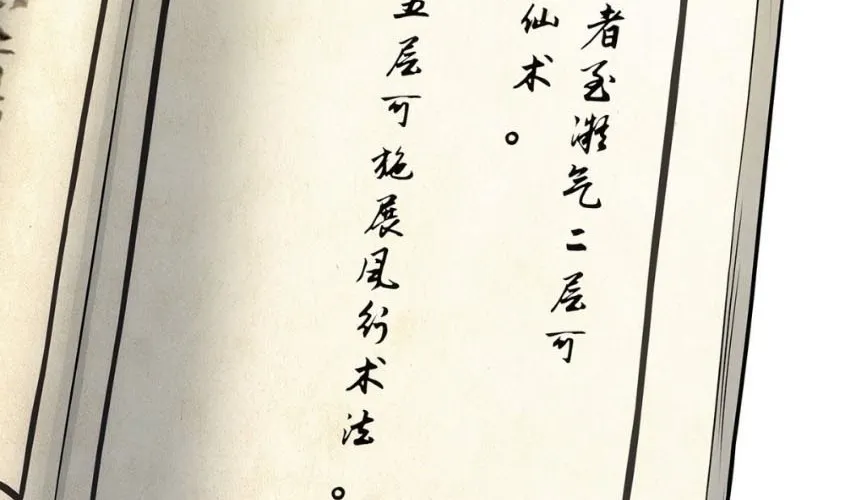 者至凝气二层可
仙术。
五层可施展风行术法。